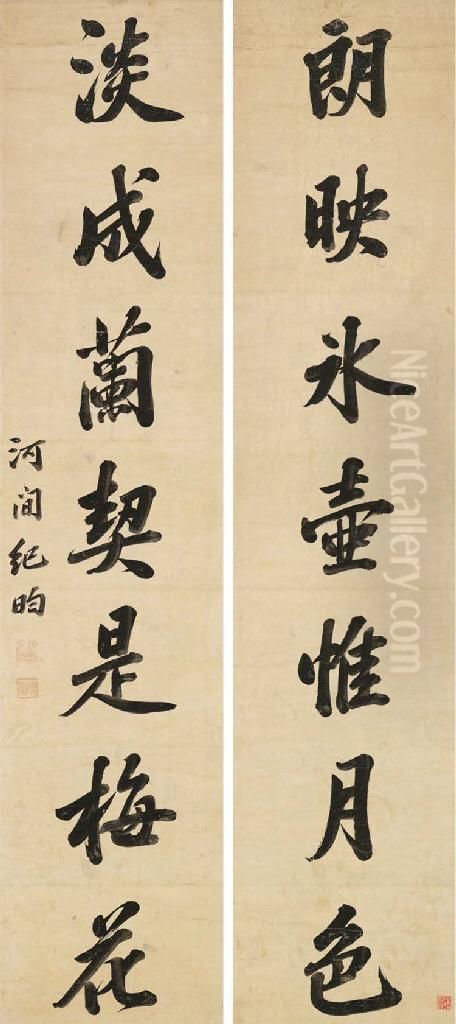 朗映氷壺惟月色
淡成蘭契是梅花
河間紀昀
NiceArtGallery.com